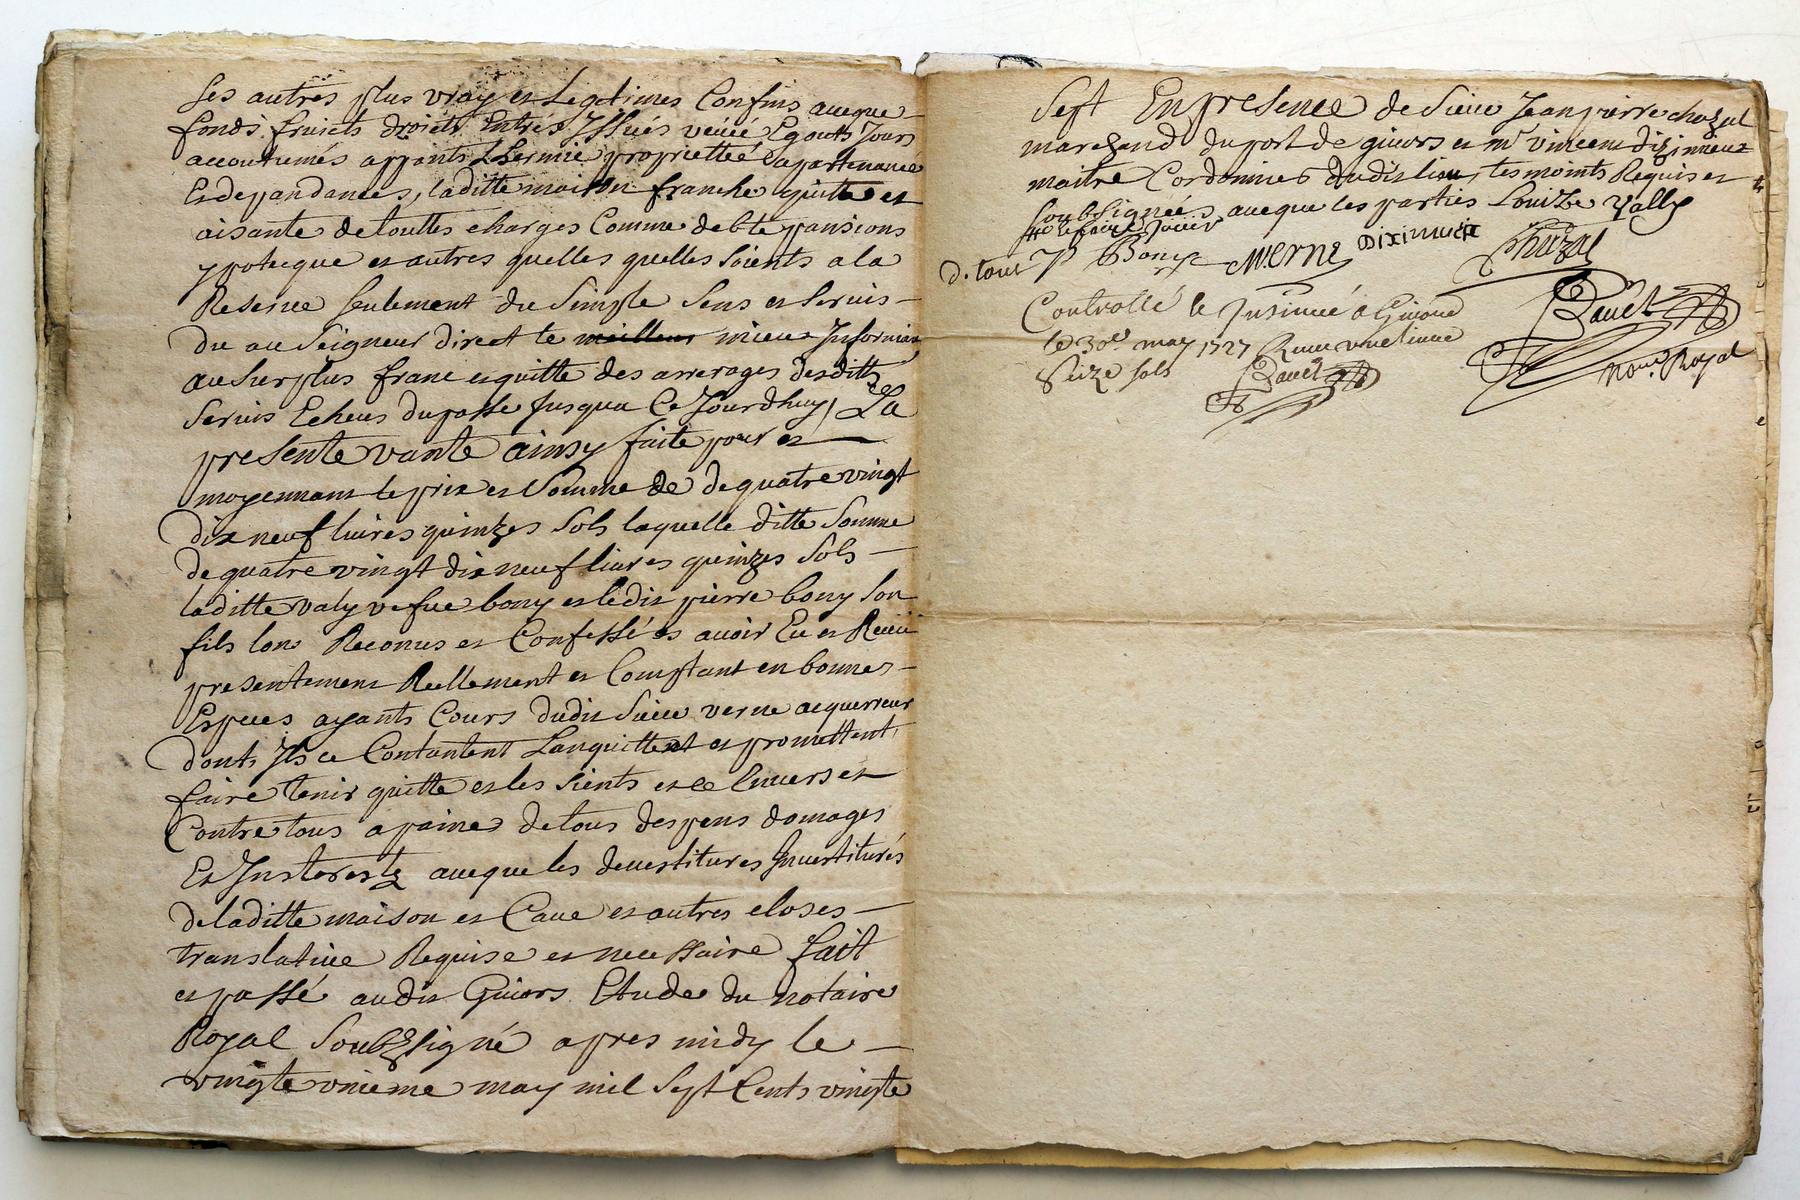 Ses autres plus vray et Legitimes Confins avecque
fonds fruicts droicts Entrés Issues veüe Egouts Jours
accoutumés appants propriettée apartenance
Esdepandances, laditte maison franche quitte et
aisante de touttes charges Comme debte pansions
ypotecque et autres quelles quelles soients a la
Reserve seulement du simple sens et servis —
du au seigneur direct le meilleur mieux Informan
au surplus franc et quitte des arrerages desditts
servis Echeus du passé Jusqua Ce Jourdhuy, La
presente vante ainsy faite pour et —
moyennant le prix et somme de de quatre vingt
dix neuf livres quinzes sols laquelle ditte somme
de quatre vingt dix neuf livres quinzes sols —
laditte valy vefue bony et ledit pierre bony son
fils lons Reconus et Confessées avoir Eu et Receü
presentement Reellement et Comptant en bonnes —
Especes ayants Cours dudit sieur verne acquerreur
donts Ils ce Contantent Lanquittent et promettent
faire tenir quitte et les sients et ce Envers et
Contre tous a paine de tous despens domages
Et Insterests avecque les devestitures Investitures
de laditte maison et Cave et autres closes —
translative Requise et necessaire fait
et passé audit Givors Etude du notaire
Royal soubzsigné apres midy le —
vingte unieme may mil sept Cents vingte
Sept En presence de sieur Jean pierre chazal
marchand du port de givors et mr vincent dizinieux
maitre Cordonnier dudit lieu, tesmoints Requis et
soubsignées avecque les parties Louize Vally
de tout P Bony Merne Diximieux Chazal
Controllé et Insinué a Givors
le 30e may 1727 Receu une livre
Seize sols
Royal